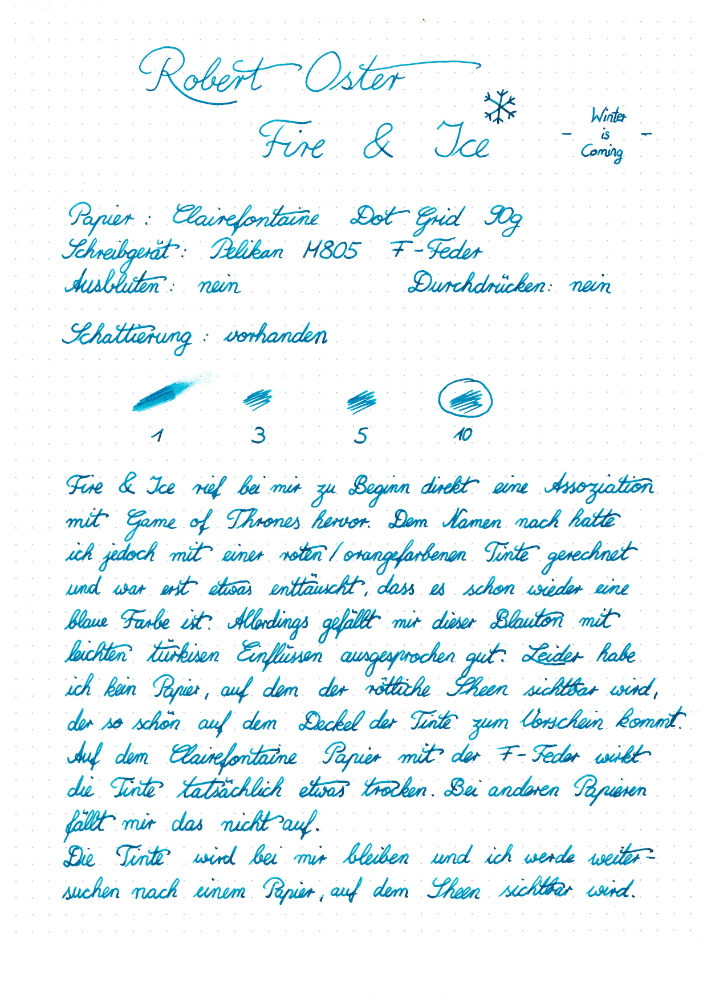 Robert Oster
Fire & Ice
Winter
- is -
Coming
Papier : Clairefontaine Dot Grid 90g
Schreibgerät : Pelikan M805 F-Feder
Ausbluten : nein Durchdrücken: nein
Schattierung : vorhanden
1 3 5 10
Fire & Ice rief bei mir zu Beginn direkt eine Assoziation
mit Game of Thrones hervor. Dem Namen nach hatte
ich jedoch mit einer roten / orangefarbenen Tinte gerechnet
und war erst etwas enttäuscht, dass es schon wieder eine
blaue Farbe ist. Allerdings gefällt mir dieser Blauton mit
leichten türkisen Einflüssen ausgesprochen gut. Leider habe
ich kein Papier, auf dem der rötliche Sheen sichtbar wird,
der so schön auf dem Deckel der Tinte zum Vorschein kommt.
Auf dem Clairefontaine Papier mit der F-Feder wirkt
die Tinte tatsächlich etwas trocken. Bei anderen Papieren
fällt mir das nicht auf.
Die Tinte wird bei mir bleiben und ich werde weiter-
suchen nach einem Papier, auf dem Sheen sichtbar wird.